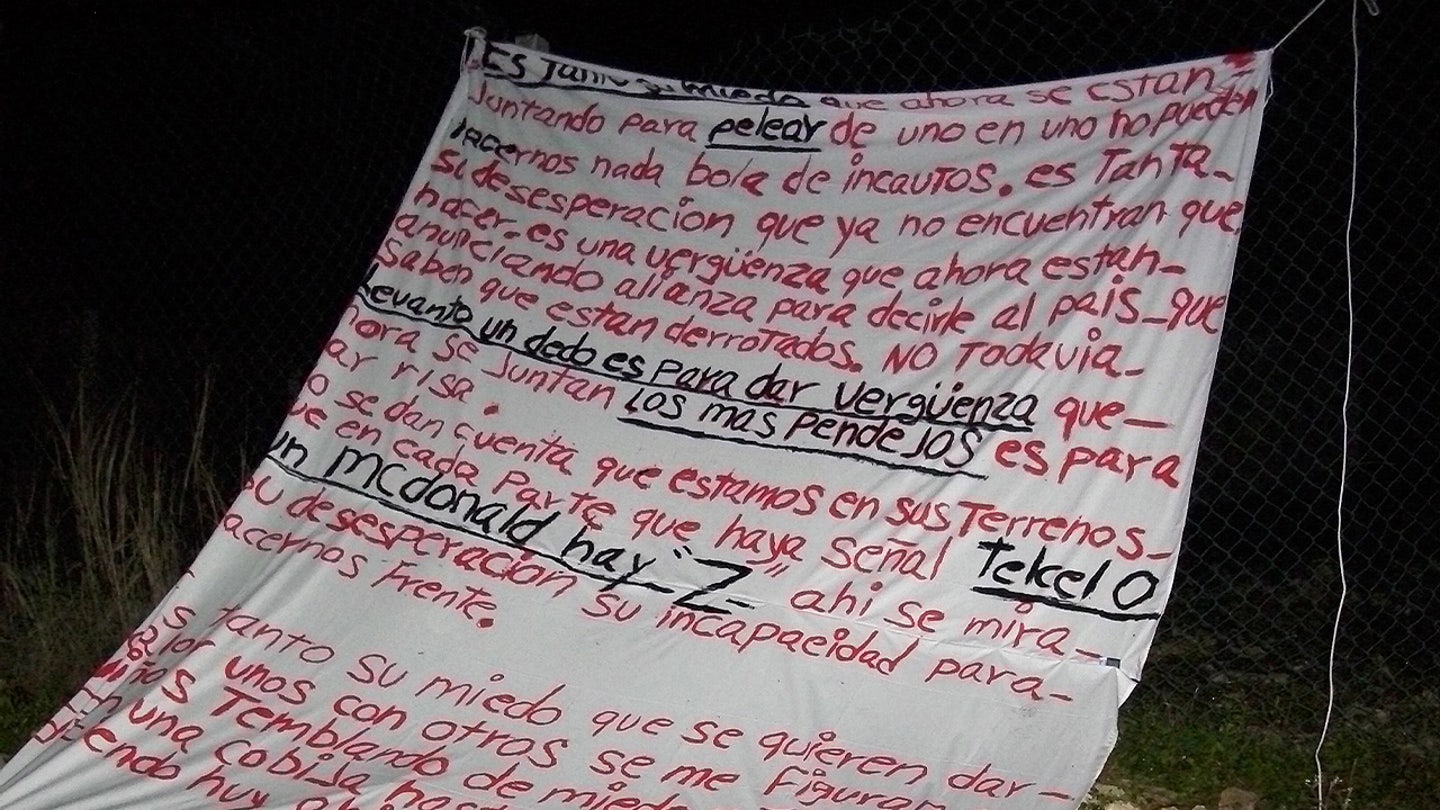 Es tanto su miedo que ahora se estan-
Juntando para pelear de uno en uno no pueden
hacernos nada bola de incautos. es Tanta-
su desesperacion que ya no encuentran que
hacer. es una vergüenza que ahora estan-
anunciando alianza para decirle al pais-que
saben que estan derrotados. NO Todavia-
Levanto un dedo es Para dar vergüenza que-
hora se Juntan Los mas PendeJOS es para
ar risa.
o se dan cuenta que estamos en sus Terrenos-
ue en cada Parte que haya señal Tekel O
un mcdonald hay "Z" ahi se mira-
su desesperacion su incapacidad para-
acernos Frente.
s tanto su miedo que se quieren dar-
valor unos con otros se me Figuran
niños Temblando de miedo
en una cobija
diciendo huy